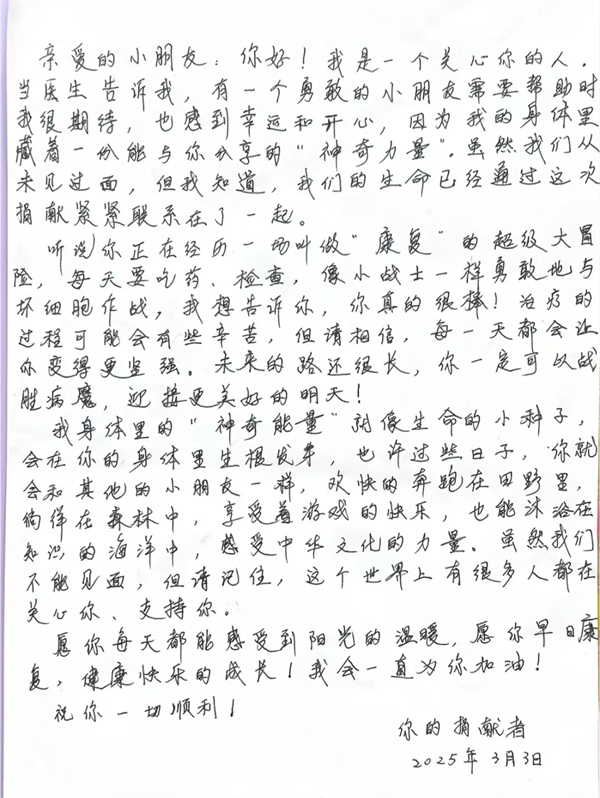 亲爱的小朋友：你好！我是一个关心你的人.
当医生告诉我，有一个勇敢的小朋友需要帮助时
我很期待，也感到幸运和开心，因为我的身体里
藏着一份能与你分享的“神奇力量”.虽然我们从
未见过面，但我知道，我们的生命已经通过这次
捐献紧紧联系在了一起。
听说你正在经历一场叫做“康复”的超级大冒
险，每天要吃药、检查，像小战士一样勇敢地与
坏细胞作战，我想告诉你，你真的很棒！治疗的
过程可能会有些辛苦，但请相信，每一天都会让
你变得更坚强。未来的路还很长，你一定可以战
胜病魔，迎接更美好的明天！
我身体里的“神奇能量”就像生命的小种子，
会在你的身体里生根发芽，也许过些日子，你就
会和其他的小朋友一样，欢快的奔跑在田野里，
徜徉在森林中，享受着游戏的快乐，也能沐浴在
知识的海洋中，感受中华文化的力量。虽然我们
不能见面，但请记住，这个世界上有很多人都在
关心你、支持你。
愿你每天都能感受到阳光的温暖，愿你早日康
复，健康快乐的成长！我会一直为你加油！
祝你一切顺利！
你的捐献者
2025年3月3日